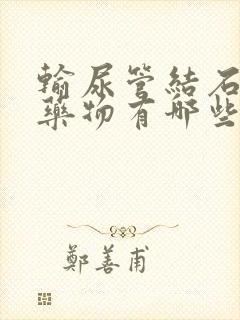 輸尿管結石
藥物有哪些
鄭善甫